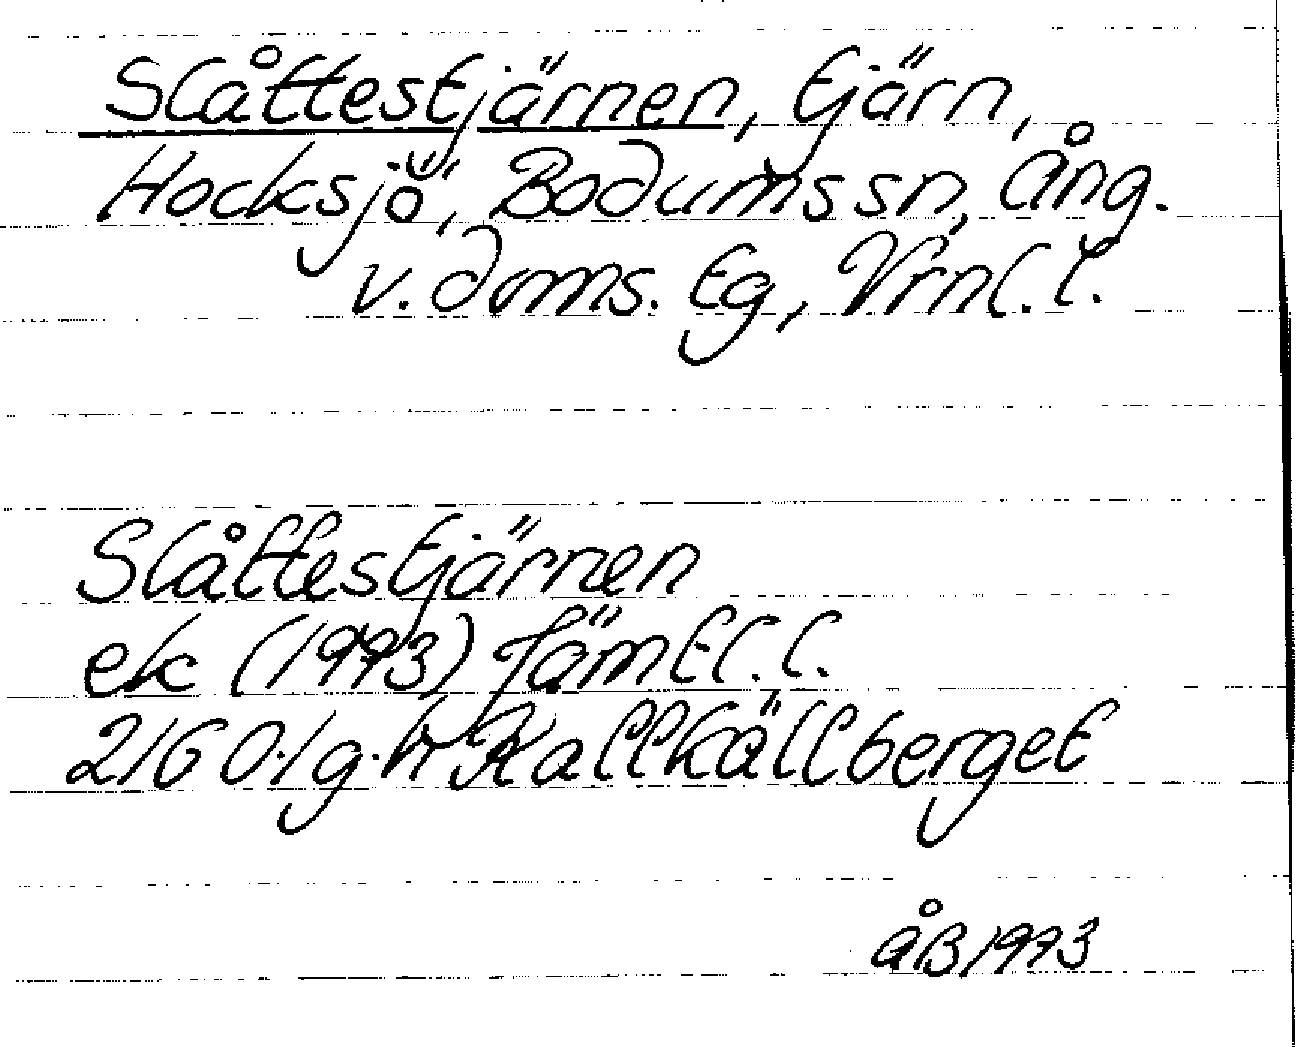 Slåttestjärnen, tjärn,
Hocksjö, Bodums sn, Ång.
v. doms. tg, Vrnl. l.
Slåttestjärnen
ek (1973) Jämtl. l.
2160·1 g·h Kallkällberget
ÅB 1973